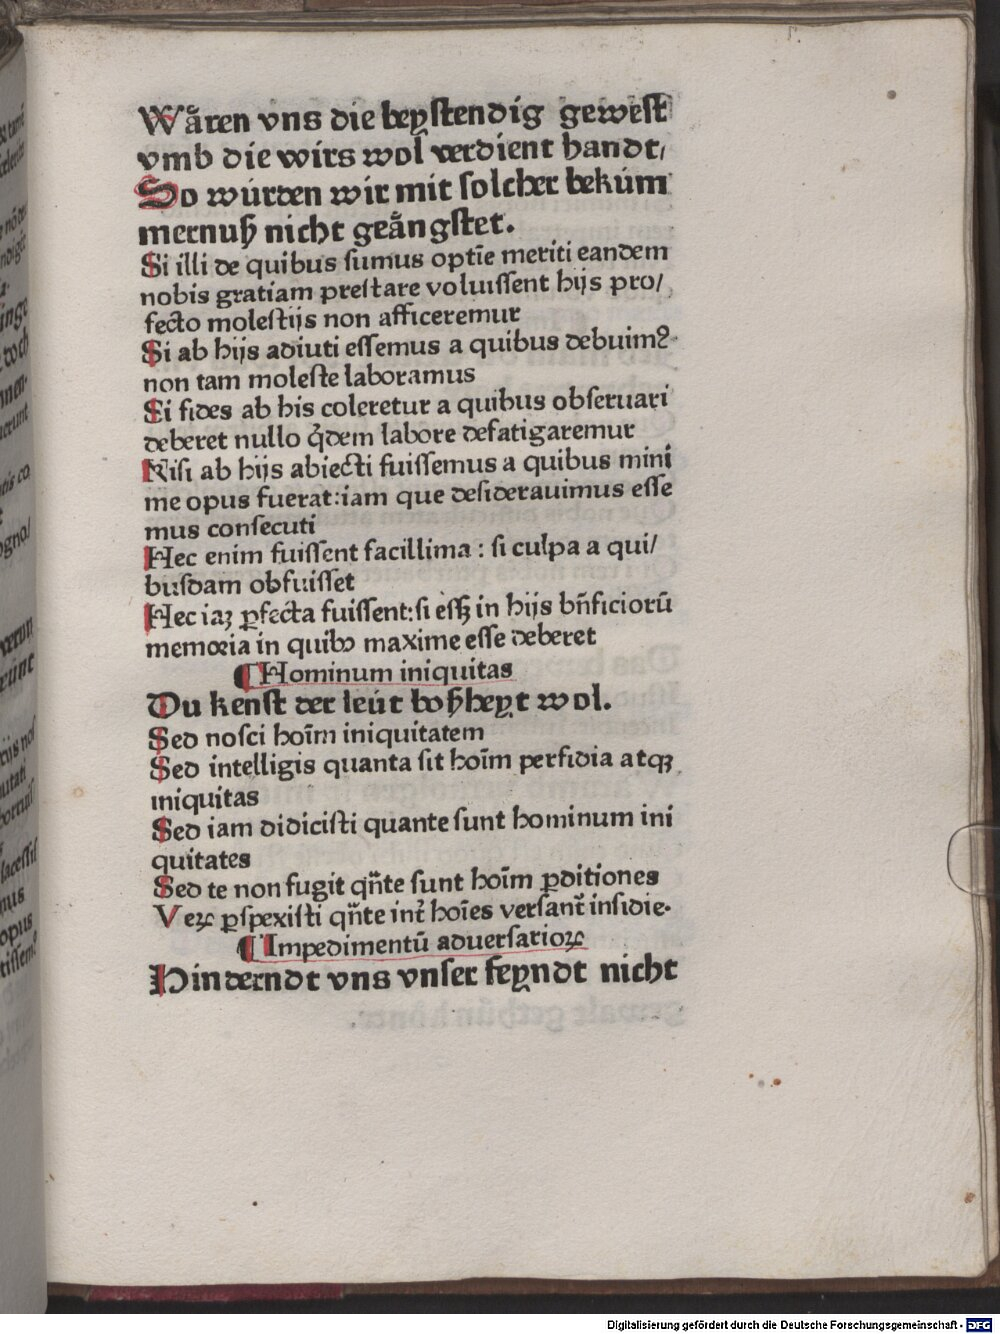 Wåren vns die beystendig gewest
vmb die wirs wol verdient handt/
So wúrden wir mit solcher bekúm
mernuß nicht geångstet.
Si illi de quibus sumus optĩe meriti eandem
nobis gratiam prestare voluissent hijs pro/
fecto molestijs non afficeremur
Si ab hijs adiuti essemus a quibus debuimꝰ
non tam moleste laboramus
Si fides ab his coleretur a quibus obseruari
deberet nullo q̄dem labore defatigaremur
Nisi ab hijs abiecti fuissemus a quibus mini
me opus fuerat: iam que desiderauimus esse
mus consecuti
Hec enim fuissent facillima: si culpa a qui/
busdam obfuisset
Hec iaꝫ ꝑfecta fuissent: si eēꝫ in hijs bn̄ficiorū
memoria in quibꝰ maxime esse deberet
¶ Hominum iniquitas
Du kenst der leút boßheyt wol.
Sed nosci hoīm iniquitatem
Sed intelligis quanta sit hoīm perfidia atqꝫ
iniquitas
Sed iam didicisti quante sunt hominum ini
quitates
Sed te non fugit qn̄te sunt hoīm ꝑditiones
Veꝝ ꝑspexisti qn̄te int̄ hoīes versant̄ insidie.
¶ Impedimentū aduersarioꝝ
Hinderndt vns vnser feyndt nicht
Digitalisierung gefördert durch die Deutsche Forschungsgemeinschaft - DFG